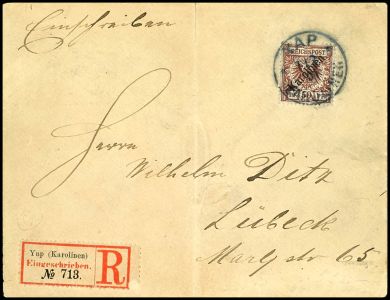 Einschreiben
YAP
REICHSPOST
Karolinen
Herrn
Wilhelm Ditz
Lübeck
Marlystr 65
Yap (Karolinen)
Eingeschrieben.
№ 713.
R